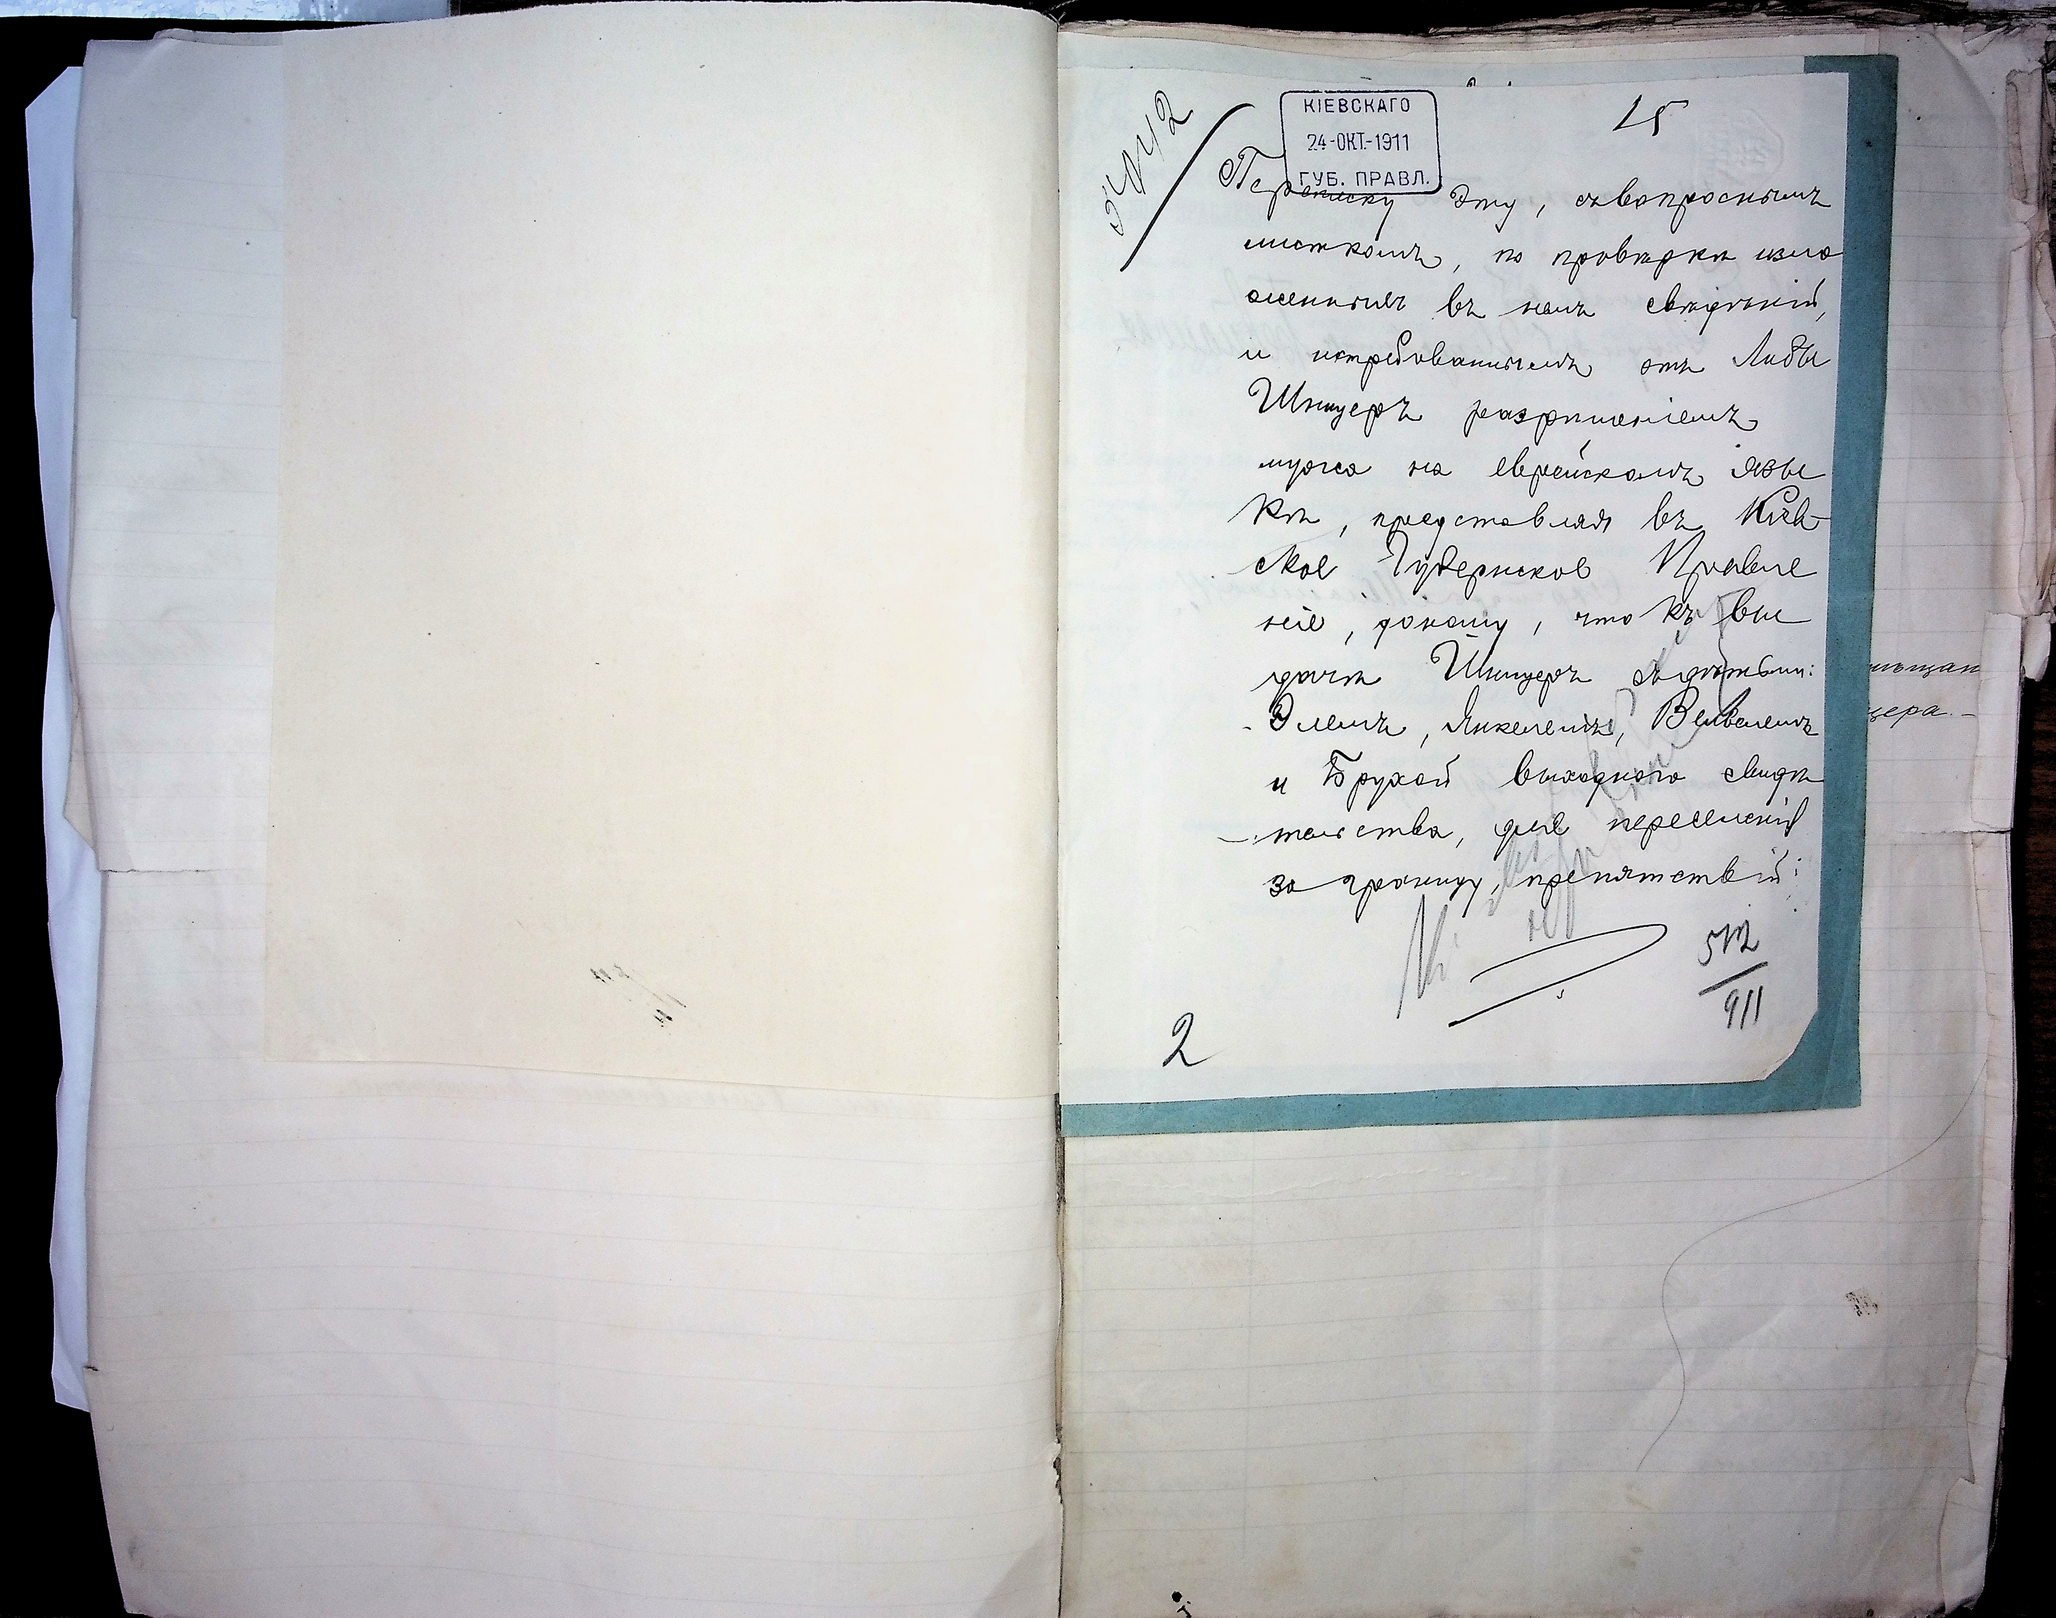 КІЕВСКАГО
24-ОКТ.-1911
ГУБ. ПРАВЛ.
15
Переписку эту, съ вопроснымъ
листкомъ, по провѣркѣ изло
женныхъ въ немъ свѣдѣній,
и истребованнымъ отъ Либы
Шницеръ разрѣшеніемъ
мужа на еврейскомъ язы
кѣ, представляя въ Кіев-
ское Губернское Правле
ніе, доношу, что къ вы
дачѣ Шницеръ съ дѣтьми:
Элемъ, Янкелемъ, Вельвелемъ
и Брухой выходного свидѣ
тельства, для переселенія
за границу, препятствій
911
2
мѣщан
цера.-